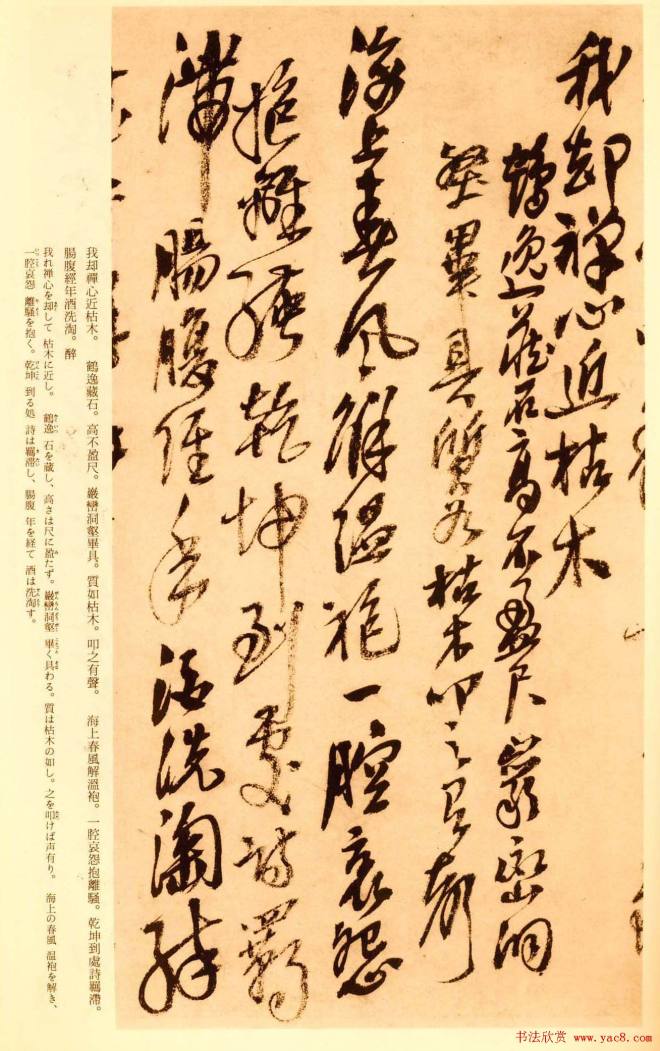 我却禅心近枯木
鶴逸藏石高不盈尺巖巒洞
壑畢具質如枯木叩之有聲
海上春風解溫袍一腔哀怨
抱離騷乾坤到處詩羈
滯腸腹經年酒洗淘醉
我却禪心近枯木。 鶴逸藏石。高不盈尺。巖巒洞壑畢具。質如枯木。叩之有聲。 海上春風解溫袍。一腔哀怨抱離騷。乾坤到處詩羈滯。
腸腹經年酒洗淘。醉
我れ禅心を却して 枯木に近し。 鶴逸 石を蔵し、高さは尺に盈たず。巖巒洞壑 畢く具わる。質は枯木の如し。之を叩けば声有り。 海上の春風 温袍を解き、
一腔哀怨 離騒を抱く。乾坤 到る処 詩は羈滞し、腸腹 年を経て 酒は洗淘す。
书法欣赏 www.yac8.com